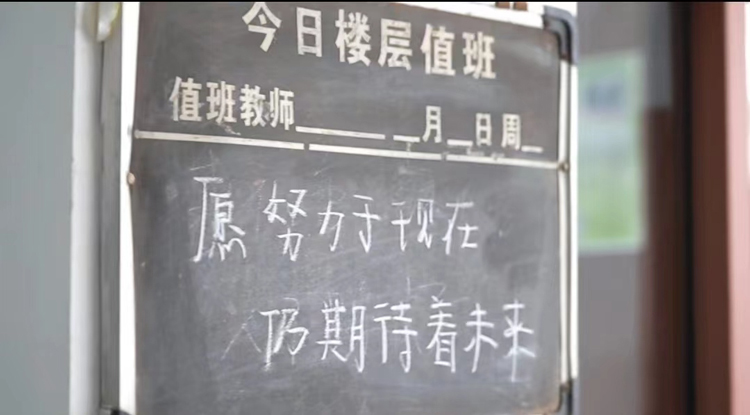 今日楼层值班
值班教师______ __月__日 周__
愿努力于现在
仍期待着未来